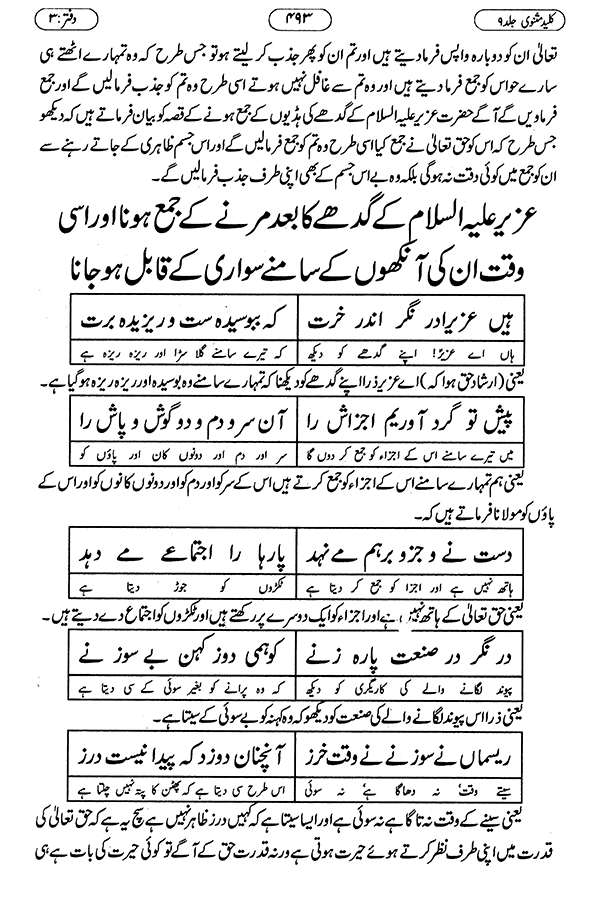 کلید مثنوی جلد ۹ ۴۹۳ دفتر: ۳
تعالیٰ ان کو دوبارہ واپس فرما دیتے ہیں اور تم ان کو پھر جذب کر لیتے ہو تو جس طرح کہ وہ تمہارے اٹھتے ہی
سارے حواس کو جمع فرما دیتے ہیں اور وہ تم سے غافل نہیں ہوتے اسی طرح وہ تم کو جذب فرمالیں گے اور جمع
فرماویں گے آگے حضرت عزیر علیہ السلام کے گدھے کی ہڈیوں کے جمع ہونے کے قصہ کو بیان فرماتے ہیں کہ دیکھو
جس طرح کہ اس کو حق تعالیٰ نے جمع کیا اسی طرح وہ تم کو جمع فرمالیں گے اور اس جسم ظاہری کے جاتے رہنے سے
ان کو جمع میں کوئی دقت نہ ہوگی بلکہ وہ بے اس جسم کے بھی اپنی طرف جذب فرمالیں گے۔
عزیر علیہ السلام کے گدھے کا بعد مرنے کے جمع ہونا اور اسی
وقت ان کی آنکھوں کے سامنے سواری کے قابل ہو جانا
ہیں عزیرا در نگر اندر خرت کہ ببوسیدہ ست و ریزیدہ برت
ہاں اے عزیر! اپنے گدھے کو دیکھ کہ تیرے سامنے گلا سڑا اور ریزہ ریزہ ہے
یعنی (ارشاد حق ہوا کہ) اے عزیر ذرا اپنے گدھے کو دیکھنا کہ تمہارے سامنے وہ بوسیدہ اور ریزہ ریزہ ہو گیا ہے۔
پیش تو گرد آوریم اجزاش را آن سر و دم و دو گوش و پاش را
میں تیرے سامنے اس کے اجزاء کو جمع کر دوں گا سر اور دم اور دونوں کان اور پاؤں کو
یعنی ہم تمہارے سامنے اس کے اجزاء کو جمع کرتے ہیں اس کے سر کو اور دم کو اور دونوں کانوں کو اور اس کے
پاؤں کو مولانا فرماتے ہیں کہ۔
دست نے و جزو برہم مے نہد پارہا را اجتماعے مے دہد
ہاتھ نہیں ہے اور اجزا کو جمع کر دیتا ہے ٹکڑوں کو جوڑ دیتا ہے
یعنی حق تعالیٰ کے ہاتھ نہیں ہے اور اجزاء کو ایک دوسرے پر رکھتے ہیں اور ٹکڑوں کو اجتماع دے دیتے ہیں۔
در نگر در صنعت پارہ زنے کوہمی دوز کہن بے سوز نے
پیوند لگانے والے کی کاریگری کو دیکھ کہ وہ پرانے کو بغیر سوئی کے سی دیتا ہے
یعنی ذرا اس پیوند لگانے والے کی صنعت کو دیکھو کہ وہ کہنہ کو بے سوئی کے سیتا ہے۔
ریسماں نے سوزنے نے وقت خرز آنچنان دوزد کہ پیدا نیست درز
سیتے وقت نہ دھاگا ہے نہ سوئی اس طرح سی دیتا ہے کہ پھٹن کا پتہ نہیں چلتا ہے
یعنی سینے کے وقت نہ تاگا ہے نہ سوئی ہے اور ایسا سیتا ہے کہ کہیں درز ظاہر نہیں ہے سچ یہ ہے کہ حق تعالیٰ کی
قدرت میں اپنی طرف نظر کرتے ہوئے حیرت ہوتی ہے ورنہ قدرت حق کے آگے تو کوئی حیرت کی بات ہے ہی